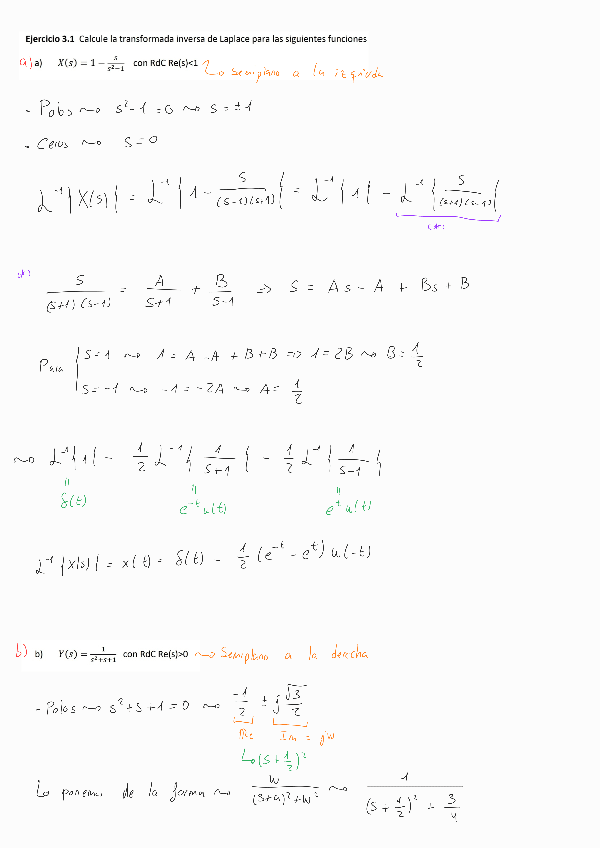 Ejercicio 3.1 Calcule la transformada inversa de Laplace para las siguientes funciones
a) a) X(s) = 1 − s/(s²−1) con RdC Re(s)<1 ↳ semiplano a la izquierda
- Polos ⇝ s² - 1 = 0 ⇝ s = ±1
- Ceros ⇝ s = 0
L⁻¹{X(s)} = L⁻¹{1 - s/((s-1)(s+1))} = L⁻¹{1} - L⁻¹{s/((s+1)(s-1))}
(*)
(*) s/((s+1)(s-1)) = A/(s+1) + B/(s-1) => s = As - A + Bs + B
Para { s = 1 ⇝ 1 = A - A + B + B => 1 = 2B ⇝ B = 1/2
s = -1 ⇝ -1 = -2A ⇝ A = 1/2
⇝ L⁻¹{1} - 1/2 L⁻¹{1/(s+1)} - 1/2 L⁻¹{1/(s-1)}
δ(t) e^-t u(t) e^t u(t)
L⁻¹{X(s)} = x(t) = δ(t) - 1/2 (e^-t - e^t) u(-t)
b) b) Y(s) = 1/(s²+s+1) con RdC Re(s)>0 ⇝ Semiplano a la derecha
- Polos ⇝ s² + s + 1 = 0 ⇝ -1/2 ± j √3/2
Re Im = jw
↳ (s + 1/2)²
Lo ponemos de la forma ⇝ w/((s+a)² + w²) ⇝ 1/((s + 1/2)² + 3/4)